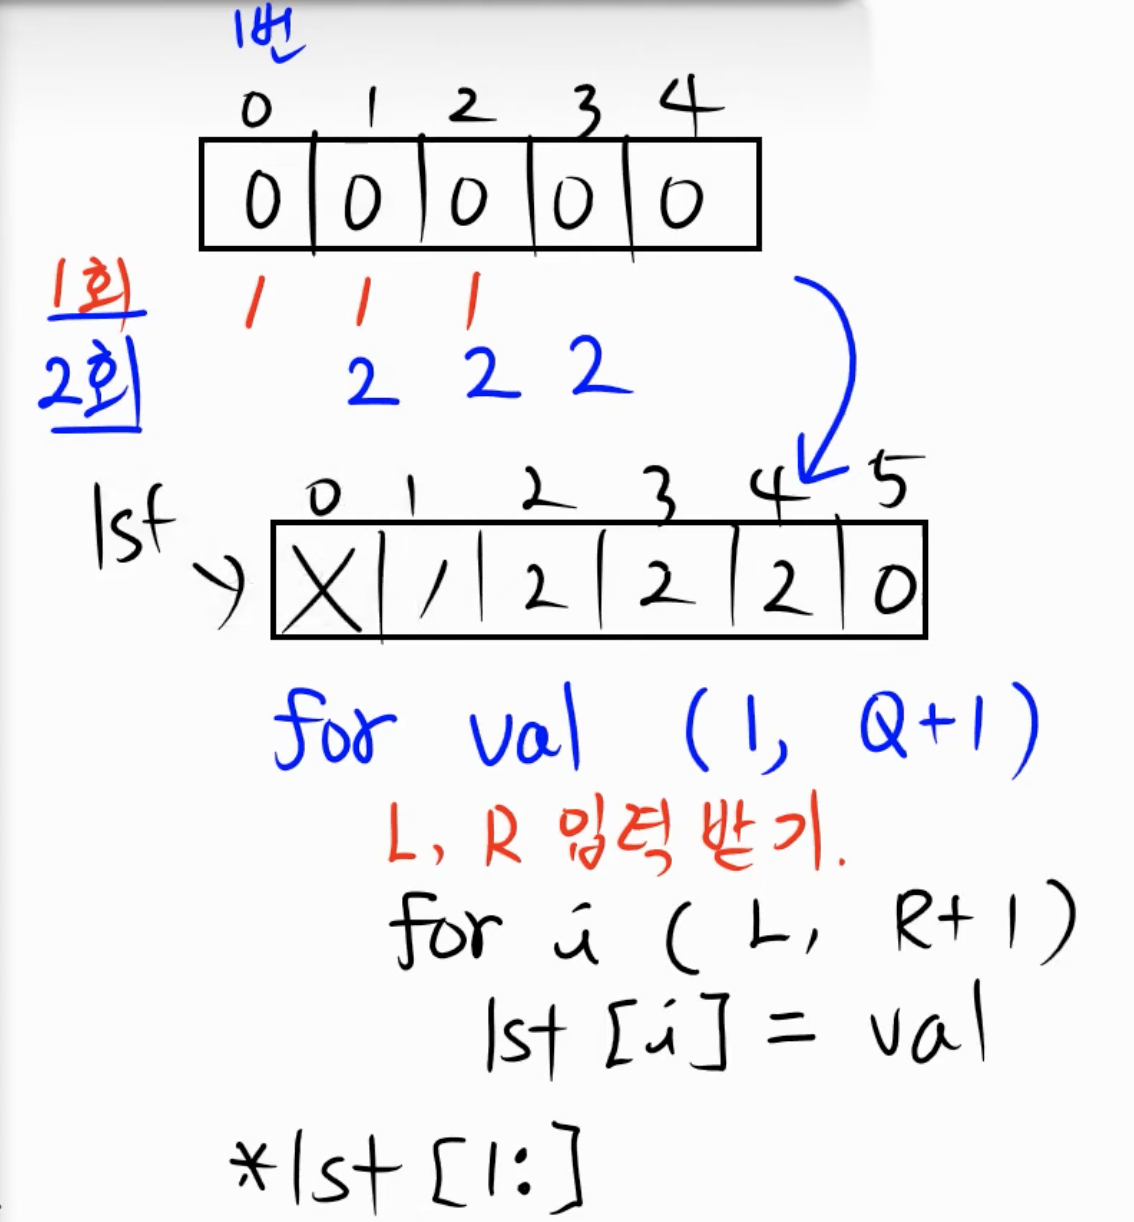 1번
0 1 2 3 4
0 0 0 0 0
1회 1 1 1
2회 2 2 2
0 1 2 3 4 5
lst X 1 2 2 2 0
for val (1, Q+1)
L, R 입력 받기.
for i (L, R+1)
lst [i] = val
*lst [1:]